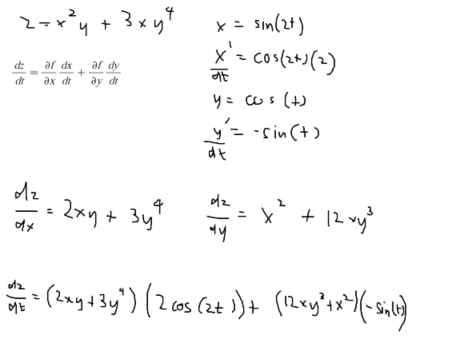 z = x²y + 3xy⁴
dz/dt = ∂f/∂x dx/dt + ∂f/∂y dy/dt
x = sin(2t)
x'/dt = cos(2t)(2)
y = cos(t)
y'/dt = -sin(t)
dz/dx = 2xy + 3y⁴
dz/dy = x² + 12xy³
dz/dt = (2xy+3y⁴)(2cos(2t))+ (12xy³+x²)(-sin(t))